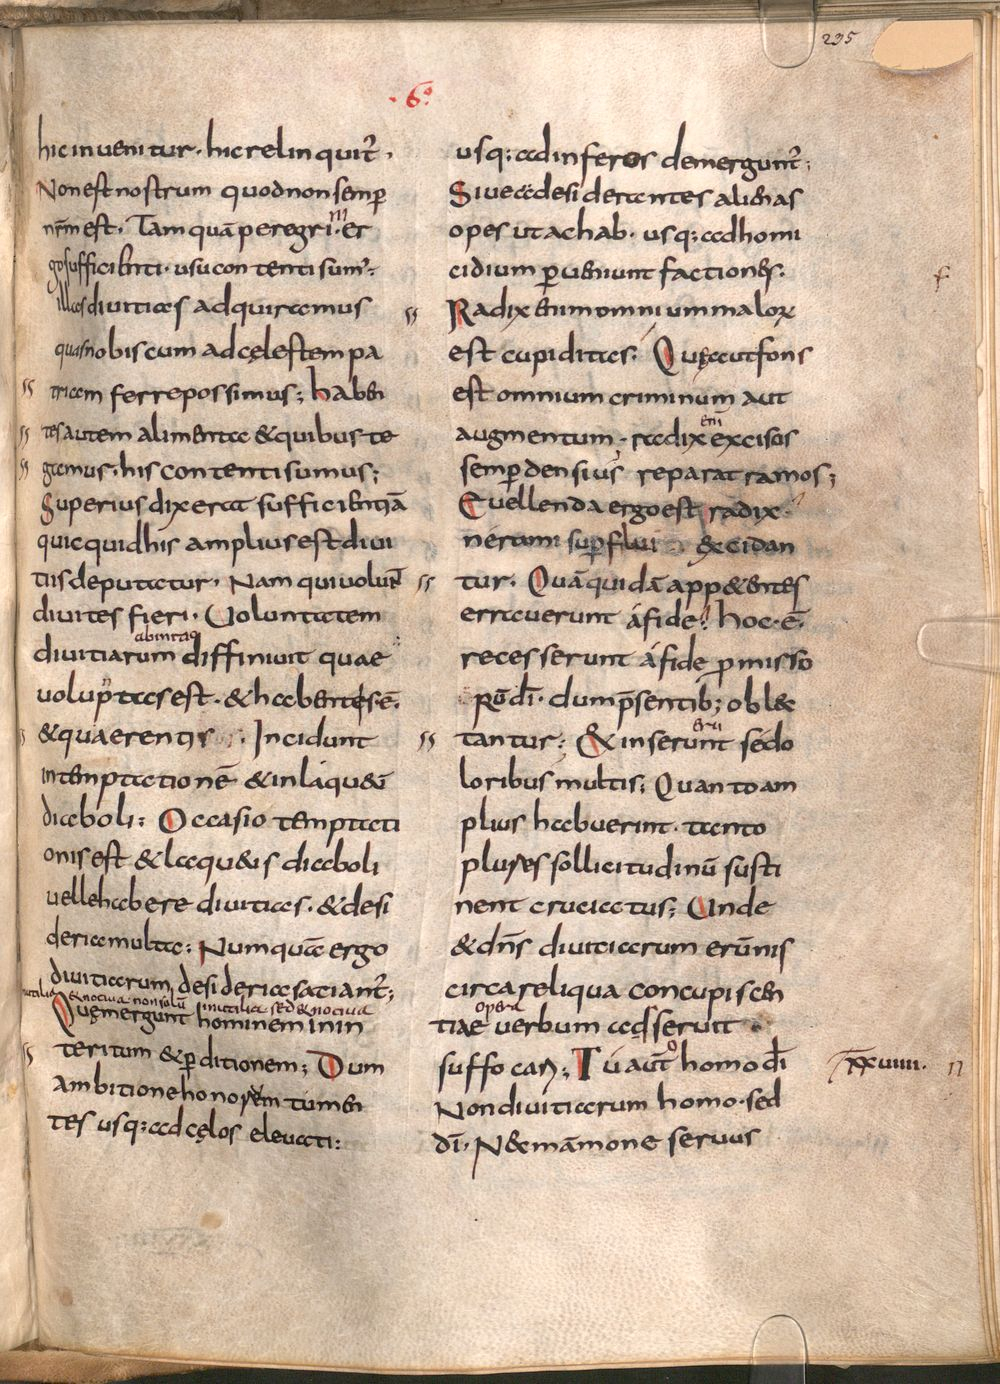 235
.6.
hic inuenitur. hic relinquit̃.
Non est nostrum quod non semp̲
nr̃m est. Tamquã peregrini. er
go sufficienti. usu contenti sum᷒.
illas diuitias adquiramus
quas nobiscum ad cęlestem pa
triam ferre possimus; haben
tes autem alimenta & quibus te
gamus. his contenti sumus;
Superius dixerat sufficientiã
quicquid his amplius est diui
tiis deputatur. Nam qui uolunt
diuites fieri. Voluntatem
ab intrat᷒
diuitiarum diffiniuit quae
uoluptas est. & habentes ẽ.
& quaerentis. Incidunt
in temptationẽ & in láqueũ
diaboli; Occasio temptati
onis est & laqueis diaboli
uelle habere diuitias. & desi
deria multa; Numquã ergo
diuitiarum desideria satiant̃;
inutilia & nociua non solũ inutilia sed & nociua
Quę mergunt hominem in in
teritum & p̲ditionem; Dum
ambitione honorem tumen
tes usq; ad cęlos eleuati;
usq; ad inferos demergunt̃;
Siue & desiderantes alienas
opes ut achab. usq; ad homi
cidium p̲ueniunt factiones.
Radix enim omnium malorꝝ
est cupiditas; Quę acut fons
est omnium criminum aut
eni
augmentum. radix excisos
semp̲ densius reparat ramos;
Euellenda ergo est radix.
ne rami sup̲flui & cidan
tur. Quã quidã app&entes
errauerunt á fide; hoc. ẽ.
recesserunt á fide p̲misso
rũ dī. dum p̄sentib; oble
c̄tantur; & inserunt se do
eru
loribus multis; Quanto am
plius habuerint. tanto
plures sollicitudinũ susti
nent cruciatus; Unde
& dñs diuitiarum erũnis
circa reliqua concupiscen
opera
tiae uerbum adseruit
suffocari; Tú aut̃ homo dī
xxviiii.
Non diuitiarum homo. sed
dī. N& mãmone seruus